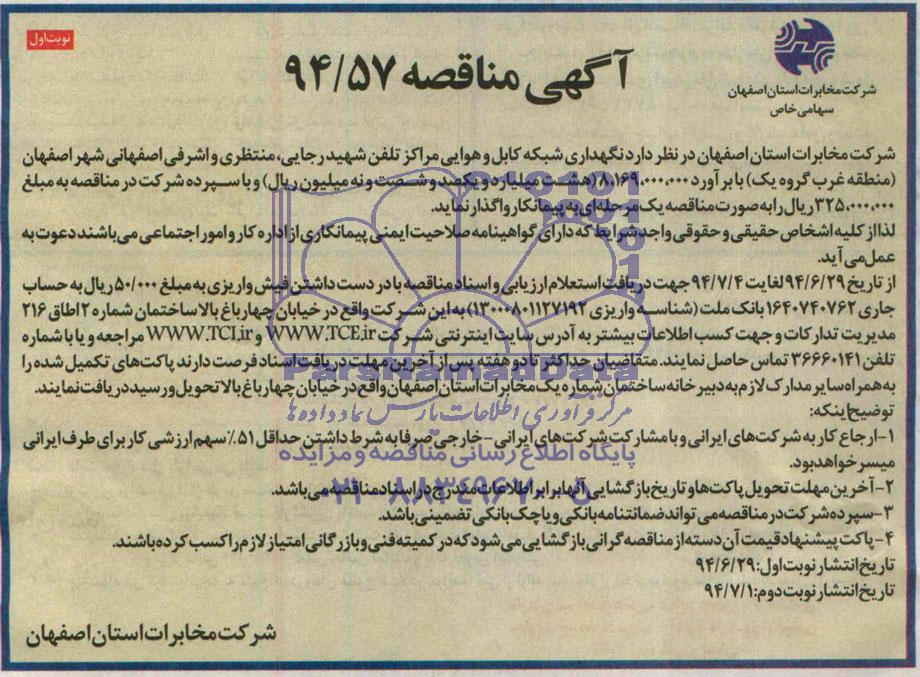 نوبت اول
شرکت مخابرات استان اصفهان
سهامی خاص
آگهی مناقصه ۹۴/۵۷
شرکت مخابرات استان اصفهان در نظر دارد نگهداری شبکه کابل و هوایی مراکز تلفن شهید رجایی، منتظری و اشرفی اصفهانی شهر اصفهان
(منطقه غرب گروه یک) با برآورد ۸،۱۶۹،۰۰۰،۰۰۰ (هشت میلیارد و یکصد و شصت و نه میلیون ریال) و با سپرده شرکت در مناقصه به مبلغ
۳۲۵،۰۰۰،۰۰۰ ریال را به صورت مناقصه یک مرحله‌ای به پیمانکار واگذار نماید.
لذا از کلیه اشخاص حقیقی و حقوقی واجد شرایط که دارای گواهینامه صلاحیت ایمنی پیمانکاری از اداره کار و امور اجتماعی می‌باشند دعوت به
عمل می‌آید.
از تاریخ ۹۴/۶/۲۹ لغایت ۹۴/۷/۴ جهت دریافت استعلام ارزیابی و اسناد مناقصه با در دست داشتن فیش واریزی به مبلغ ۵۰/۰۰۰ ریال به حساب
جاری ۱۶۴۰۷۴۰۷۶۲ بانک ملت (شناسه واریزی ۱۳۰۰۰۸۰۱۱۲۷۱۹۲) به این شرکت واقع در خیابان چهارباغ بالا ساختمان شماره ۲ اطاق ۲۱۶
مدیریت تدارکات و جهت کسب اطلاعات بیشتر به آدرس سایت اینترنتی شرکت WWW.TCE.ir و WWW.TCI.ir مراجعه و یا با شماره
تلفن ۳۶۶۶۰۱۴۱ تماس حاصل نمایند. متقاضیان حداکثر تا دو هفته پس از آخرین مهلت دریافت اسناد فرصت دارند پاکت‌های تکمیل شده را
به همراه سایر مدارک لازم به دبیرخانه ساختمان شماره یک مخابرات استان اصفهان واقع در خیابان چهارباغ بالا تحویل و رسید دریافت نمایند.
توضیح اینکه:
۱-ارجاع کار به شرکت‌های ایرانی و یا مشارکت شرکت‌های ایرانی-خارجی صرفا به شرط داشتن حداقل ۵۱٪ سهم ارزشی کار برای طرف ایرانی
میسر خواهد بود.
۲-آخرین مهلت تحویل پاکت‌ها و تاریخ بازگشایی آنها برابر اطلاعات مندرج در اسناد مناقصه می‌باشد.
۳-سپرده شرکت در مناقصه می‌تواند ضمانتنامه بانکی و یا چک بانکی تضمینی باشد.
۴-پاکت پیشنهاد قیمت آن دسته از مناقصه گرانی بازگشایی می‌شود که در کمیته فنی و بازرگانی امتیاز لازم را کسب کرده باشند.
تاریخ انتشار نوبت اول: ۹۴/۶/۲۹
تاریخ انتشار نوبت دوم: ۹۴/۷/۱
شرکت مخابرات استان اصفهان
ParsNamadData
مرکز فرآوری اطلاعات پارس نماد داده‌ها
پایگاه اطلاع رسانی مناقصه و مزایده